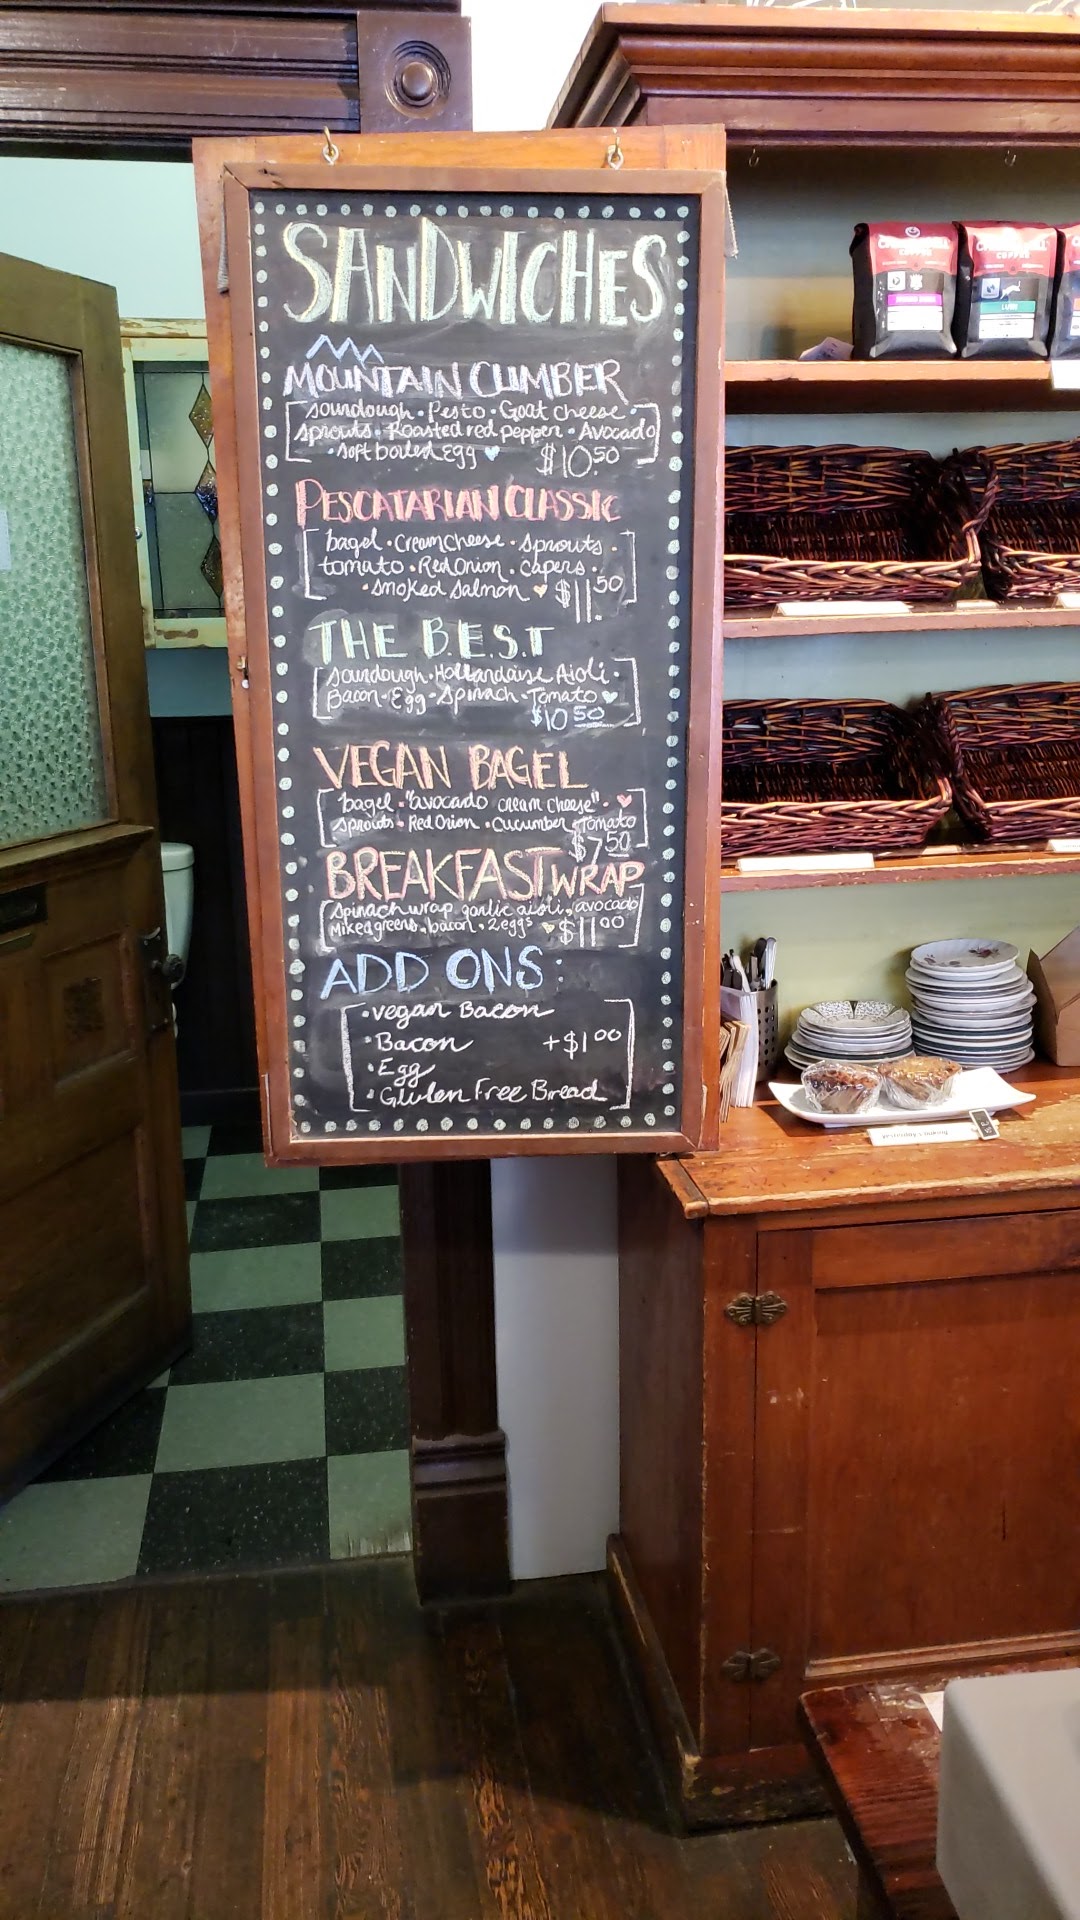 SANDWICHES
MOUNTAIN CLIMBER
sourdough • Pesto • Goat cheese •
sprouts • Roasted red pepper • Avocado
• soft boiled Egg $10 50
PESCATARIAN CLASSIC
bagel • Cream Cheese • Sprouts •
tomato • Red Onion • Capers •
• smoked salmon $11.50
THE B.E.S.T
sourdough • Hollandaise Aioli •
Bacon • Egg • Spinach • Tomato
$10 50
VEGAN BAGEL
bagel • "avocado cream cheese" •
sprouts • Red Onion • Cucumber • Tomato
$7 50
BREAKFAST WRAP
spinach wrap garlic aioli, avocado
Mixed greens • bacon • 2 eggs $11 00
ADD ONS:
• vegan Bacon
• Bacon +$1 00
• Egg
• Gluten Free Bread
COFFEE
COFFEE